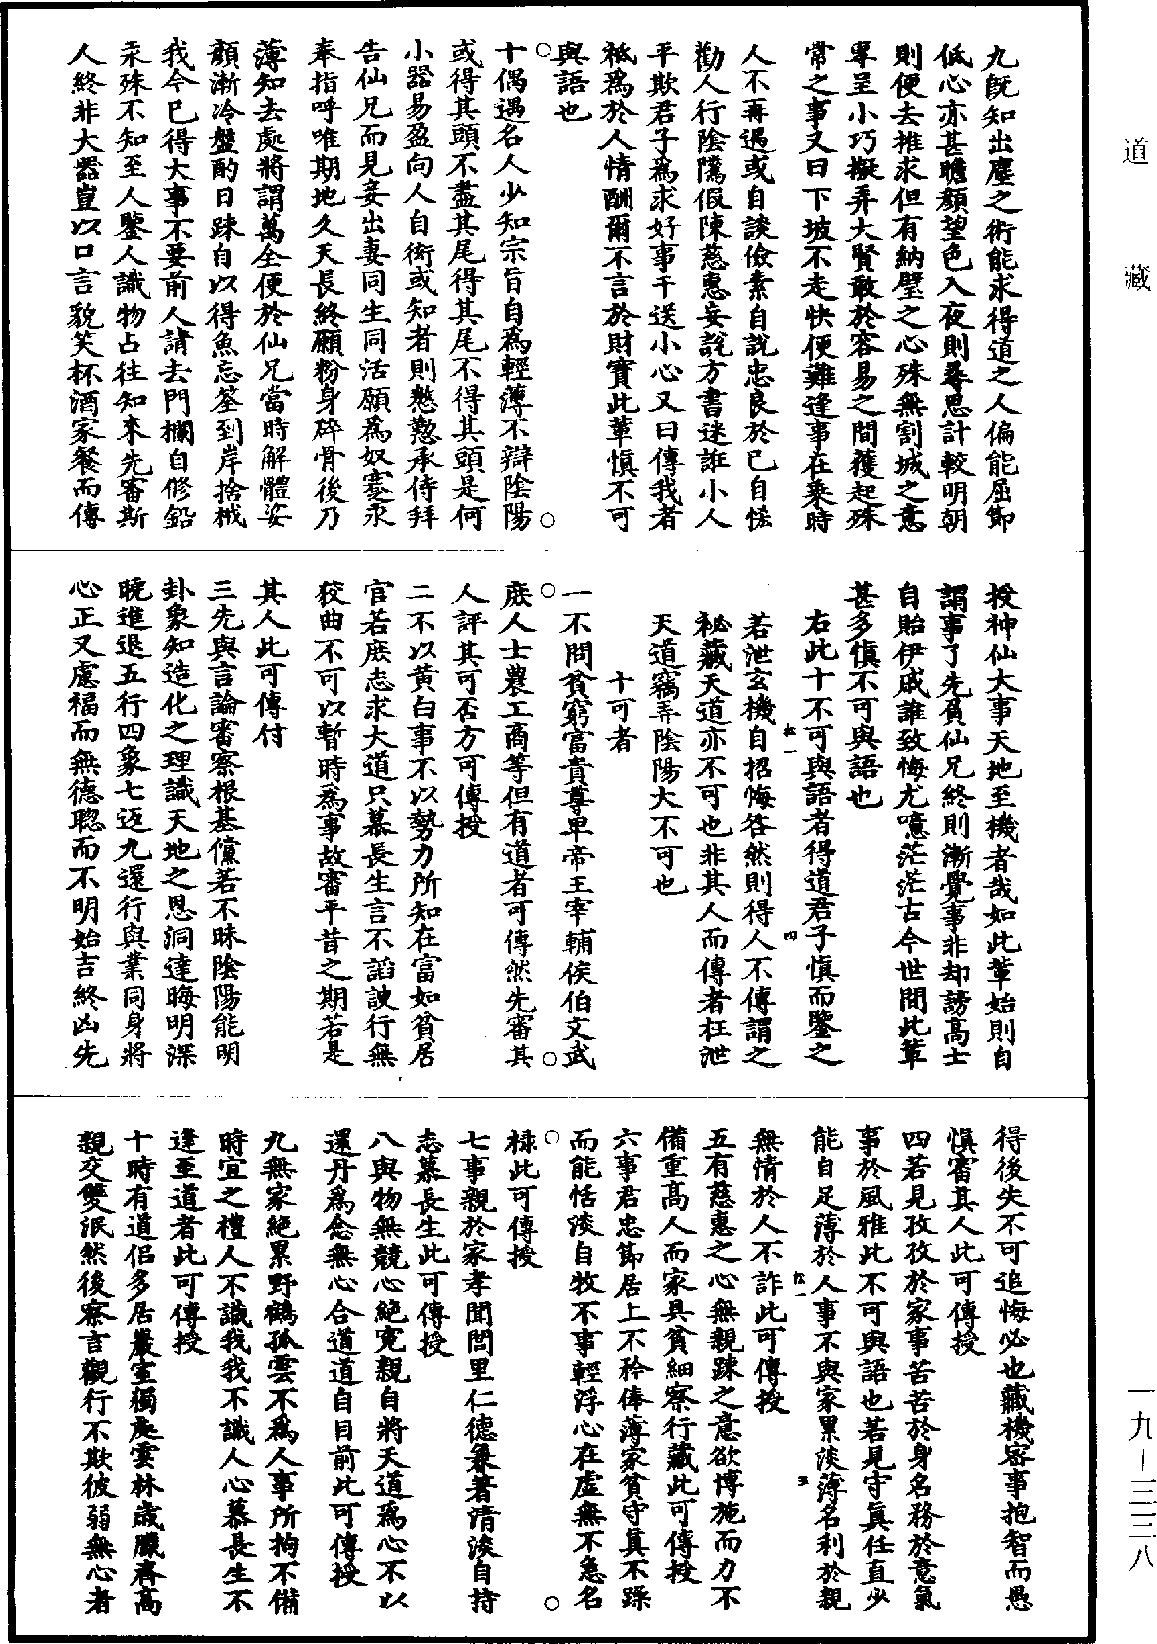 道藏
九既知出塵之術能求得道之人偏能屈節
低心亦甚瞻顏望色入夜則尋思計較明朝
則便去推求但有納璧之心殊無割城之意
專呈小巧擬弄大賢敢於容易之間獲起殊
常之事又曰下坡不走快便難逢事在乘時
人不再遇或自談儉素自說忠良於己自恡
勸人行陰隲假陳慈惠妄說方書迷誑小人
平欺君子為求好事干送小心又曰傳我者
祗為於人情酬爾不言於財寶此輩慎不可
與語也
十偶遇名人少知宗旨自為輕薄不辯陰陽
或得其頭不盡其尾得其尾不得其頭是何
小器易盈向人自衒或知者則慇懃承侍拜
告仙兄而見妾出妻同生同活願為奴蹇永
奉指呼唯期地久天長終願粉身碎骨後乃
薄知去處將謂萬全便於仙兄當時解體姿
顏漸冷盤酌日踈自以得魚忘筌到岸捨栰
我今已得大事不要前人請去門攔自修鉛
汞殊不知至人鑒人識物占往知來先審斯
人終非大器豈以口言貌笑杯酒家餐而傳
授神仙大事天地至機者哉如此輩始則自
謂事了先負仙兄終則漸覺事非却謗高士
自貽伊戚誰致悔尤噫茫茫古今世間此輩
甚多慎不可與語也
右此十不可與語者得道君子慎而鑒之
若泄玄機自招悔咎然則得人不傳謂之
祕藏天道亦不可也非其人而傳者枉泄
天道竊弄陰陽大不可也
十可者
一不問貧窮富貴尊卑帝王宰輔侯伯文武
庶人士農工商等但有道者可傳然先審其
人評其可否方可傳授
二不以黃白事不以勢力所知在富如貧居
官若庶志求大道只慕長生言不諂諛行無
狡曲不可以暫時為事故審平昔之期若是
其人此可傳付
三先與言論審察根基儻若不昧陰陽能明
卦象知造化之理識天地之恩洞達晦明深
曉進退五行四象七返九還行與業同身將
心正又慮福而無德聰而不明始吉終凶先
得後失不可追悔必也藏機密事抱智而愚
慎審其人此可傳授
四若見孜孜於家事苦苦於身名務於意氣
事於風雅此不可與語也若見守真任直少
能自足薄於人事不與家累淡薄名利於親
無情於人不詐此可傳授
五有慈惠之心無親踈之意欲博施而力不
備重高人而家具貧細察行藏此可傳授
六事君忠節居上不矜俸薄家貧守真不躁
而能恬淡自牧不事輕浮心在虛無不急名
祿此可傳授
七事親於家孝聞閭里仁德兼著清淡自持
志慕長生此可傳授
八與物無競心絕寃親自將天道為心不以
還丹為念無心合道道自目前此可傳授
九無家絕累野鶴孤雲不為人事所拘不備
時宜之禮人不識我我不識人心慕長生不
達至道者此可傳授
十時有道侶多居巖室獨處雲林歲臘齊高
親交雙泯然後察言觀行不欺彼弱無心者
一九－一三三八